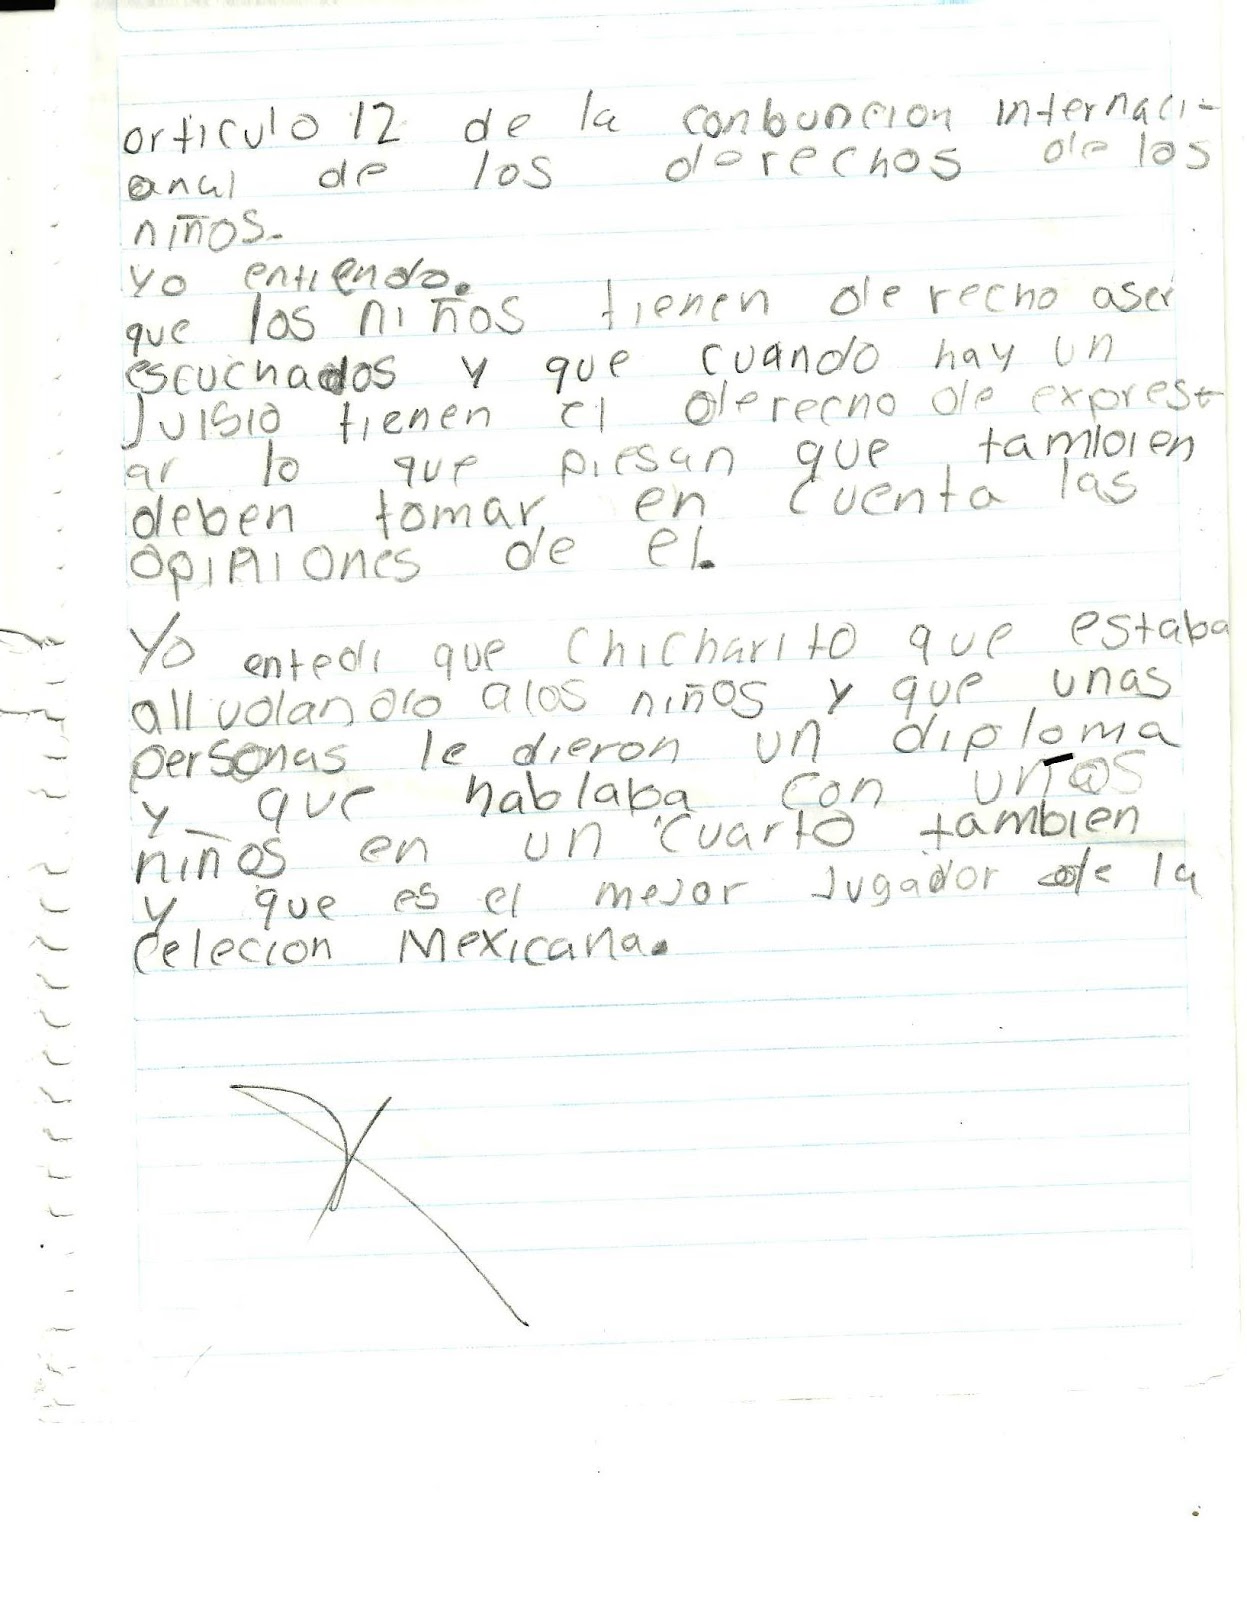 articulo 12 de la conbuncion internaci-
onal de los derechos de los
niños.
yo entiendo.
que los niños tienen derecho aser
escuchados y que cuando hay un
Juisio tienen el derecho de exprest
ar lo que piesan que tambien
deben tomar en cuenta las
opiniones de el.
Yo entedi que Chicharito que estaba
alludando alos niños y que unas
personas le dieron un diploma
y que hablaba con unos
niños en un cuarto tambien
y que es el mejor Jugador de la
Celecion Mexicana.